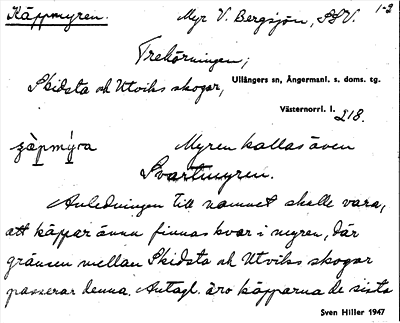 Käppmyren. Myr V. Bergsjön, SSV. 1-2
Trehörningen;
Skidsta och Utviks skogar, Ullångers sn, Ångermanl. s. doms. tg.
Västernorrl. l.
218.
Myren kallas även
Svartmyren.
Anledningen till namnet skulle vara,
att käppar ännu finnas kvar i myren, där
gränsen mellan Skidsta och Utviks skogar
passerar denna. Antagl. äro käpparna de sista
Sven Hiller 1947